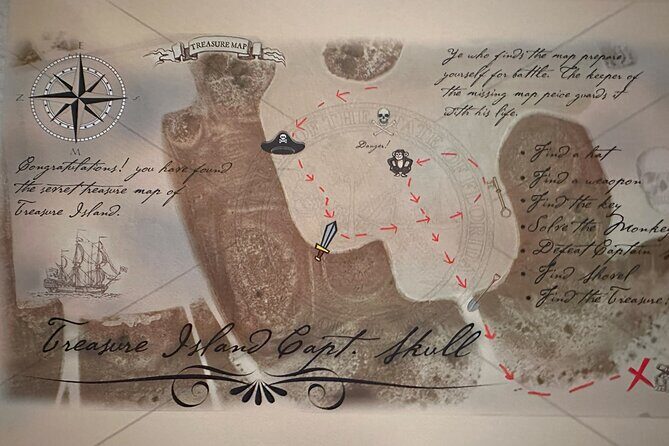 TREASURE MAP
E
S
M
Z
Ye who finds the map prepare
yourself for battle. The keeper of
the missing map peice guards it
with his life.
Congratulations! you have found
the secret treasure map of
Treasure Island.
Danger!
• Find a hat
• Find a weapon
• Find the key
• Solve the Monkey
• Defeat Captain
• Find Shovel
• Find the Treasure!
Treasure Island Capt. Skull